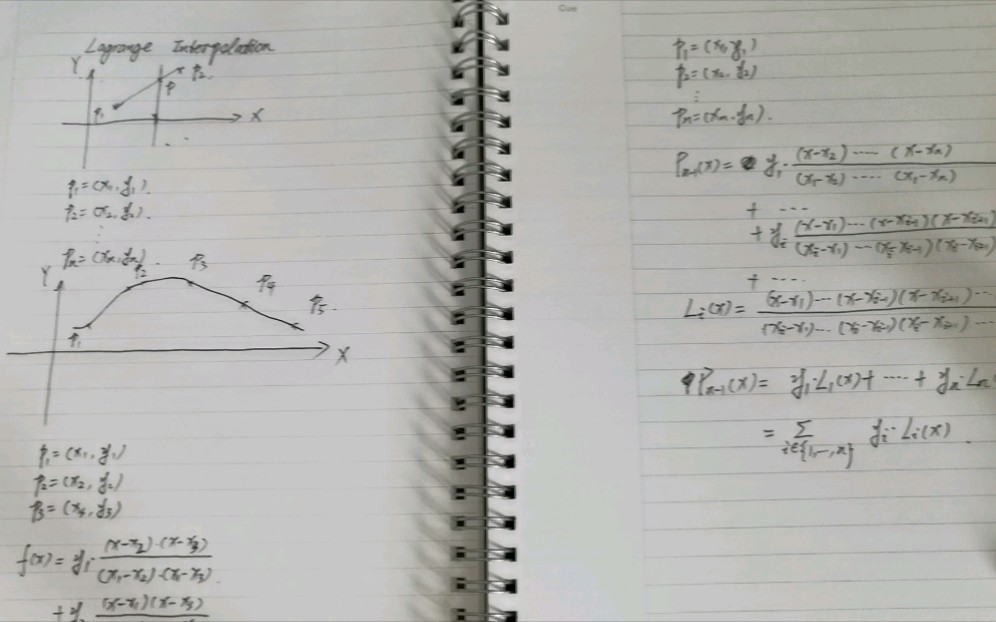 Lagrange Interpolation
Y
P₂
P
P₁
X
P₁=(x₁,y₁).
P₂=(x₂,y₂).
⋮
Pₙ=(xₙ,yₙ).
Y
P₂
P₃
P₄
P₅.
P₁
X
P₁=(x₁,y₁)
P₂=(x₂,y₂)
P₃=(x₃,y₃)
f(x)= y₁· (x-x₂)·(x-x₃) / (x₁-x₂)·(x₁-x₃).
+y₂ (x-x₁)(x-x₃)
Cue
P₁=(x₁,y₁)
P₂=(x₂,y₂)
⋮
Pₙ=(xₙ,yₙ).
Pₙ₋₁(x)= y₁· (x-x₂)····(x-xₙ) / (x₁-x₂)····(x₁-xₙ)
+ ···
+ yᵢ (x-x₁)···(x-xᵢ₋₁)(x-xᵢ₊₁) / (xᵢ-x₁)···(xᵢ-xᵢ₋₁)(xᵢ-xᵢ₊₁)
+ ····
Lᵢ(x)= (x-x₁)···(x-xᵢ₋₁)(x-xᵢ₊₁)··· / (xᵢ-x₁)···(xᵢ-xᵢ₋₁)(xᵢ-xᵢ₊₁)···
Pₙ₋₁(x)= y₁·L₁(x)+ ···· + yₙ·Lₙ
= ∑ i∈{1,···,n} yᵢ·Lᵢ(x).